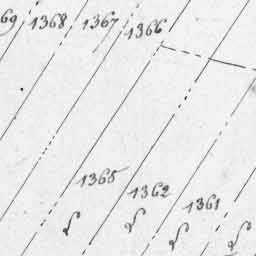 69 1368 1367 1366
1365 1362 1361